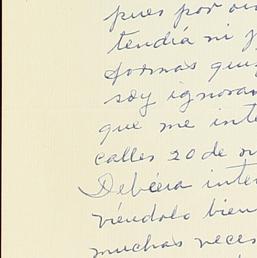 pues por
tendía ni
formas
soy ignoran
que me inte
calles 20 de
Debéera inter
viéndolo bien
muchas veces